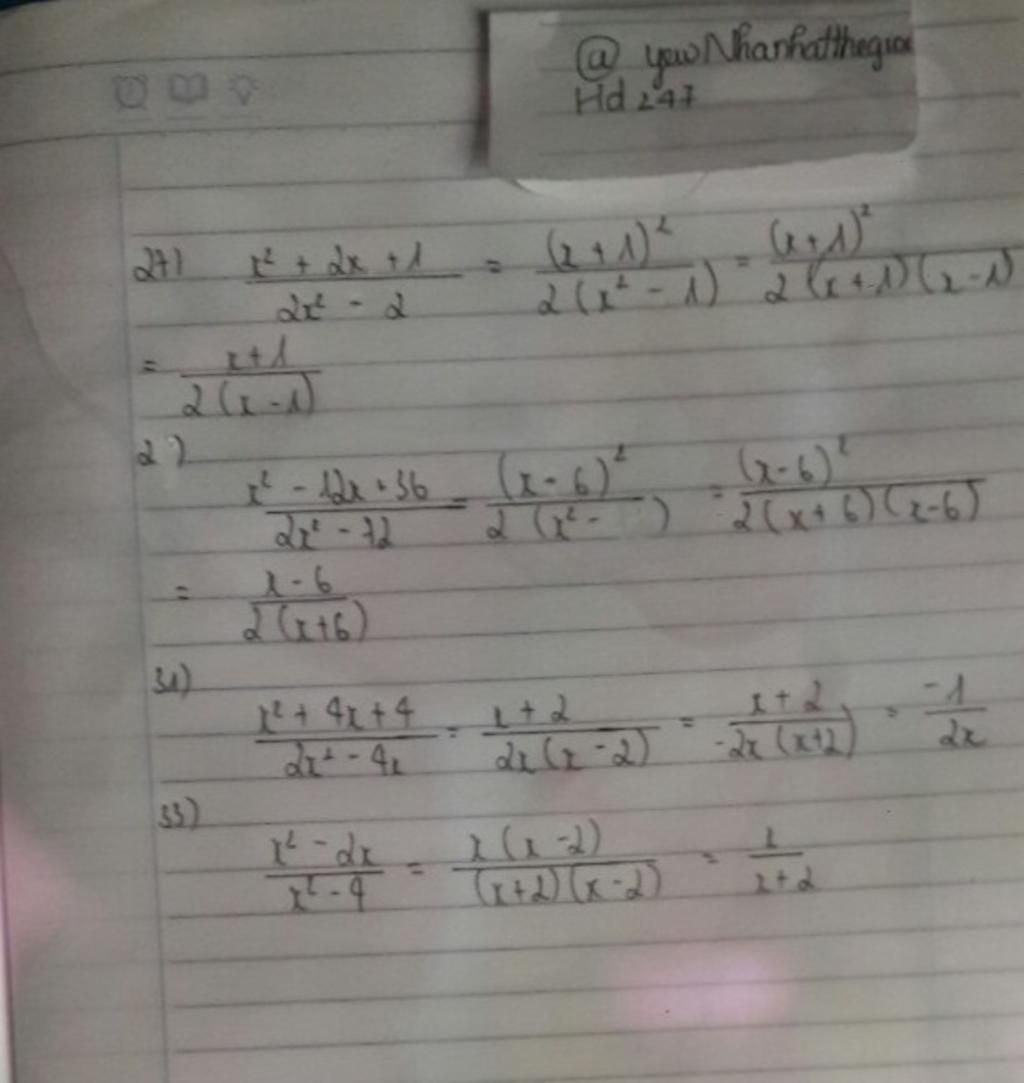 @ yewNhanhatthegioi
Hd 247
27) x² + 2x + 1 / 2x² - 2 = (x + 1)² / 2(x² - 1) = (x+1)² / 2(x+1)(x-1)
= x+1 / 2(x-1)
2 )
x² - 12x + 36 / 2x² - 72 = (x - 6)² / 2(x² - ) = (x-6)² / 2(x+6)(x-6)
= x - 6 / 2(x+6)
31)
x² + 4x + 4 / 2x² - 4x = x + 2 / 2x(x - 2) = x + 2 / -2x(x+2) = -1 / 2x
33)
x² - 2x / x² - 4 = x(x - 2) / (x+2)(x-2) = x / x+2